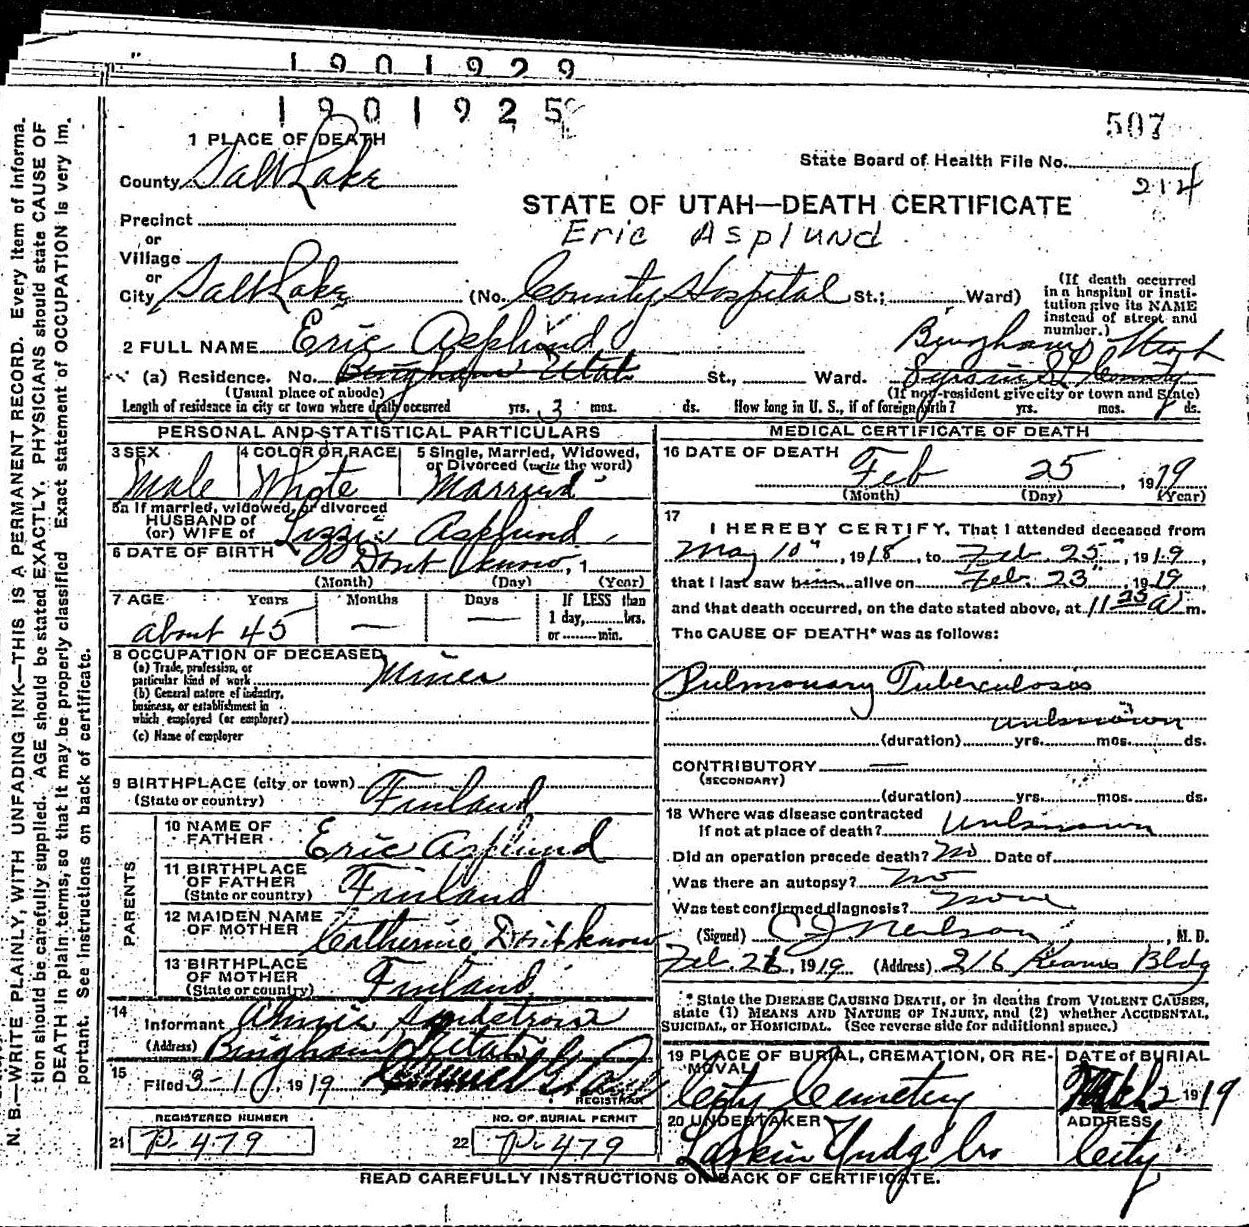 1901929
1901925
507
1 PLACE OF DEATH
State Board of Health File No.
County Salt Lake
214
STATE OF UTAH—DEATH CERTIFICATE
Precinct
Eric Asplund
or
Village
or
City Salt Lake (No. County Hospital St.; Ward)
(If death occurred in a hospital or institution give its NAME instead of street and number.)
2 FULL NAME Eric Asplund
Bingham, Utah
(a) Residence. No. Bingham Utah St., Ward. County
(Usual place of abode) (If non-resident give city or town and State)
Length of residence in city or town where death occurred yrs. 3 mos. ds. How long in U. S., if of foreign birth? yrs. mos. ds.
PERSONAL AND STATISTICAL PARTICULARS
3 SEX Male
4 COLOR OR RACE White
5 Single, Married, Widowed, or Divorced (write the word) Married
5a If married, widowed, or divorced
HUSBAND of
(or) WIFE of Lizzie Asplund
6 DATE OF BIRTH Dont know, 1
(Month) (Day) (Year)
7 AGE Years Months Days If LESS than
1 day, hrs.
about 45 — — or min.
8 OCCUPATION OF DECEASED
(a) Trade, profession, or
particular kind of work Miner
(b) General nature of industry,
business, or establishment in
which employed (or employer)
(c) Name of employer
9 BIRTHPLACE (city or town) Finland
(State or country)
PARENTS
10 NAME OF
FATHER Eric Asplund
11 BIRTHPLACE
OF FATHER Finland
(State or country)
12 MAIDEN NAME
OF MOTHER Catherine Dont know
13 BIRTHPLACE
OF MOTHER Finland
(State or country)
14
Informant
(Address) Bingham Utah
15
Filed 3-1, 1919
REGISTRAR
REGISTERED NUMBER NO. OF BURIAL PERMIT
21 P-479 22 P-479
MEDICAL CERTIFICATE OF DEATH
16 DATE OF DEATH
Feb 25, 1919
(Month) (Day) (Year)
17
I HEREBY CERTIFY, That I attended deceased from
May 10", 1918, to Feb. 25", 1919,
that I last saw him alive on Feb. 23", 1919
and that death occurred, on the date stated above, at 11 25 A m.
The CAUSE OF DEATH* was as follows:
Pulmonary Tuberculosis
unknown
(duration) yrs. mos. ds.
CONTRIBUTORY —
(SECONDARY)
(duration) yrs. mos. ds.
18 Where was disease contracted
if not at place of death? Unknown
Did an operation precede death? No Date of
Was there an autopsy? No
Was test confirmed diagnosis? None
(Signed) C J Neilson, M. D.
Feb. 26, 1919 (Address) 216 Kearns Bldg
* State the DISEASE CAUSING DEATH, or in deaths from VIOLENT CAUSES,
state (1) MEANS AND NATURE OF INJURY, and (2) whether ACCIDENTAL,
SUICIDAL, or HOMICIDAL. (See reverse side for additional space.)
19 PLACE OF BURIAL, CREMATION, OR RE-
MOVAL
City Cemetery
DATE of BURIAL
Mch 2 1919
20 UNDERTAKER
Larkin Undg Co
ADDRESS
City
READ CAREFULLY INSTRUCTIONS ON BACK OF CERTIFICATE.
N. B.—WRITE PLAINLY, WITH UNFADING INK—THIS IS A PERMANENT RECORD. Every item of informa-
tion should be carefully supplied. AGE should be stated EXACTLY. PHYSICIANS should state CAUSE OF
DEATH in plain terms, so that it may be properly classified. Exact statement of OCCUPATION is very im-
portant. See instructions on back of certificate.